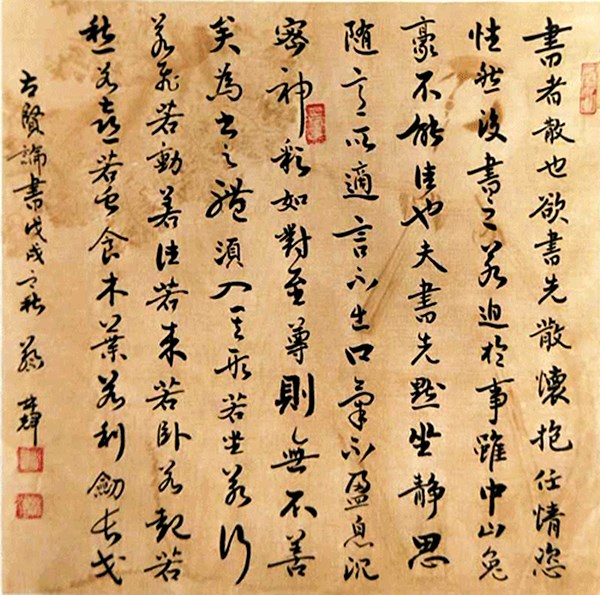 書者散也欲書先散懷抱任情恣
性然後書之若迫於事雖中山兔
豪不能佳也夫書先默坐静思
随意所適言不出口氣不盈息沉
密神彩如對至尊則無不善
矣為書之體須入其形若坐若行
若飛若動若往若来若卧若起若
愁若喜若虫食木葉若利劒長戈
古賢論書戊戌之秋